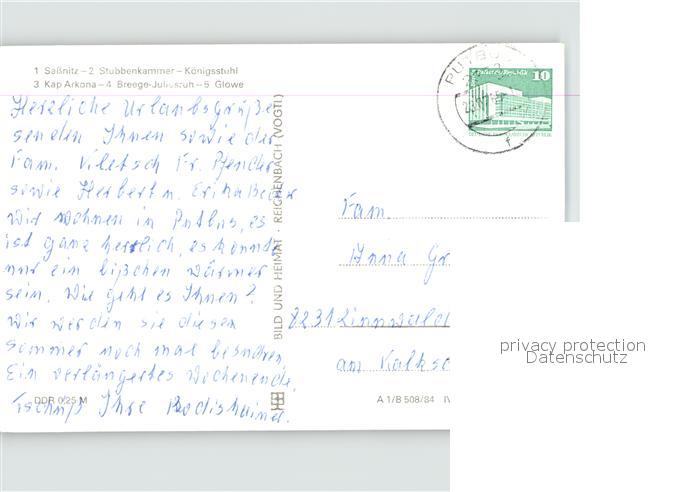 1 Saßnitz – 2 Stubbenkammer – Königsstuhl
3 Kap Arkona – 4 Breege-Juliusruh – 5 Glowe
Herzliche Urlaubsgrüße
senden Ihnen sowie der
Fam. Fr.
sowie Herbert u. Erika Becker
wir wohnen in Putbus, es
ist ganz herrlich, es könnte
nur ein bißchen wärmer
sein. Wie geht es Ihnen?
Wir werden sie diesen
Sommer noch mal besuchen
Ein verlängertes Wochenende.
Tschüß Ihre
DDR 0,25 M
BILD UND HEIMAT · REICHENBACH (VOGTL)
PUTBUS
10
f
Fam.
Anna Gr
8231 Zinnwald
am Kalksc
A 1/B 508/84 IV
privacy protection
Datenschutz